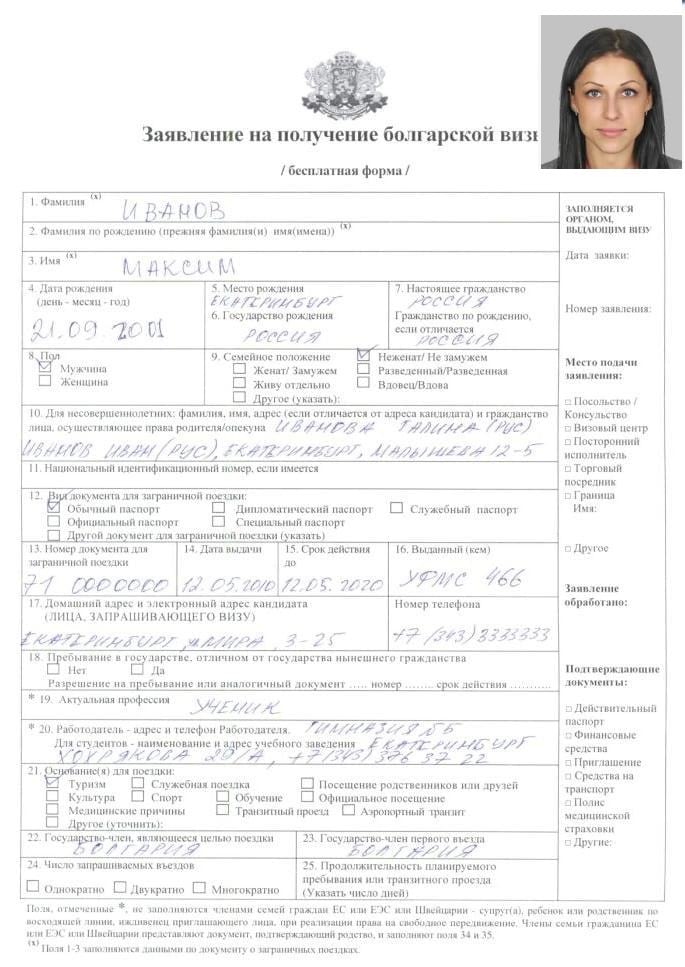 Заявление на получение болгарской виз
/ бесплатная форма /
1. Фамилия (x) ИВАНОВ
2. Фамилия по рождению (прежняя фамилия(и) имя(имена)) (x)
3. Имя (x) МАКСИМ
4. Дата рождения
(день - месяц - год)
21.09.2001
5. Место рождения
ЕКАТЕРИНБУРГ
6. Государство рождения
РОССИЯ
7. Настоящее гражданство
РОССИЯ
Гражданство по рождению,
если отличается
РОССИЯ
8. Пол
Мужчина
Женщина
9. Семейное положение
Неженат/ Не замужем
Женат/ Замужем
Разведенный/Разведенная
Живу отдельно
Вдовец/Вдова
Другое (указать):
10. Для несовершеннолетних: фамилия, имя, адрес (если отличается от адреса кандидата) и гражданство
лица, осуществляющее права родителя/опекуна ИВАНОВА ГАЛИНА (РУС)
ИВАНОВ ИВАН (РУС), ЕКАТЕРИНБУРГ, МАЛЫШЕВА 12-5
11. Национальный идентификационный номер, если имеется
12. Вид документа для заграничной поездки:
Обычный паспорт
Дипломатический паспорт
Служебный паспорт
Официальный паспорт
Специальный паспорт
Другой документ для заграничной поездки (указать)
13. Номер документа для
заграничной поездки
71 0000000
14. Дата выдачи
12.05.2010
15. Срок действия
до
12.05.2020
16. Выданный (кем)
УФМС 466
17. Домашний адрес и электронный адрес кандидата
(ЛИЦА, ЗАПРАШИВАЮЩЕГО ВИЗУ)
ЕКАТЕРИНБУРГ, МИРА, 3-25
Номер телефона
+7 (343) 3333333
18. Пребывание в государстве, отличном от государства нынешнего гражданства
Нет
Да
Разрешение на пребывание или аналогичный документ ..... номер ........ срок действия ...........
* 19. Актуальная профессия
УЧЕНИК
* 20. Работодатель - адрес и телефон Работодателя. ГИМНАЗИЯ
Для студентов - наименование и адрес учебного заведения ЕКАТЕРИНБУРГ
ХОХРЯКОВА 29/А, +7(343) 376 37 22
21. Основание(я) для поездки:
Туризм
Служебная поездка
Посещение родственников или друзей
Культура
Спорт
Обучение
Официальное посещение
Медицинские причины
Транзитный проезд
Аэропортный транзит
Другое (уточнить):
22. Государство-член, являющееся целью поездки
БОЛГАРИЯ
23. Государство-член первого въезда
БОЛГАРИЯ
24. Число запрашиваемых въездов
Однократно
Двукратно
Многократно
25. Продолжительность планируемого
пребывания или транзитного проезда
(Указать число дней)
ЗАПОЛНЯЕТСЯ
ОРГАНОМ,
ВЫДАЮЩИМ ВИЗУ
Дата заявки:
Номер заявления:
Место подачи
заявления:
□ Посольство /
Консульство
□ Визовый центр
□ Посторонний
исполнитель
□ Торговый
посредник
□ Граница
Имя:
□ Другое
Заявление
обработано:
Подтверждающие
документы:
□ Действительный
паспорт
□ Финансовые
средства
□ Приглашение
□ Средства на
транспорт
□ Полис
медицинской
страховки
□ Другие:
Поля, отмеченные *, не заполняются членами семей граждан ЕС или ЕЭС или Швейцарии - супруг(а), ребенок или родственник по
восходящей линии, иждивенец приглашающего лица, при реализации права на свободное передвижение. Члены семьи гражданина ЕС
или ЕЭС или Швейцарии представляют документ, подтверждающий родство, и заполняют поля 34 и 35.
(x) Поля 1-3 заполняются данными по документу о заграничных поездках.